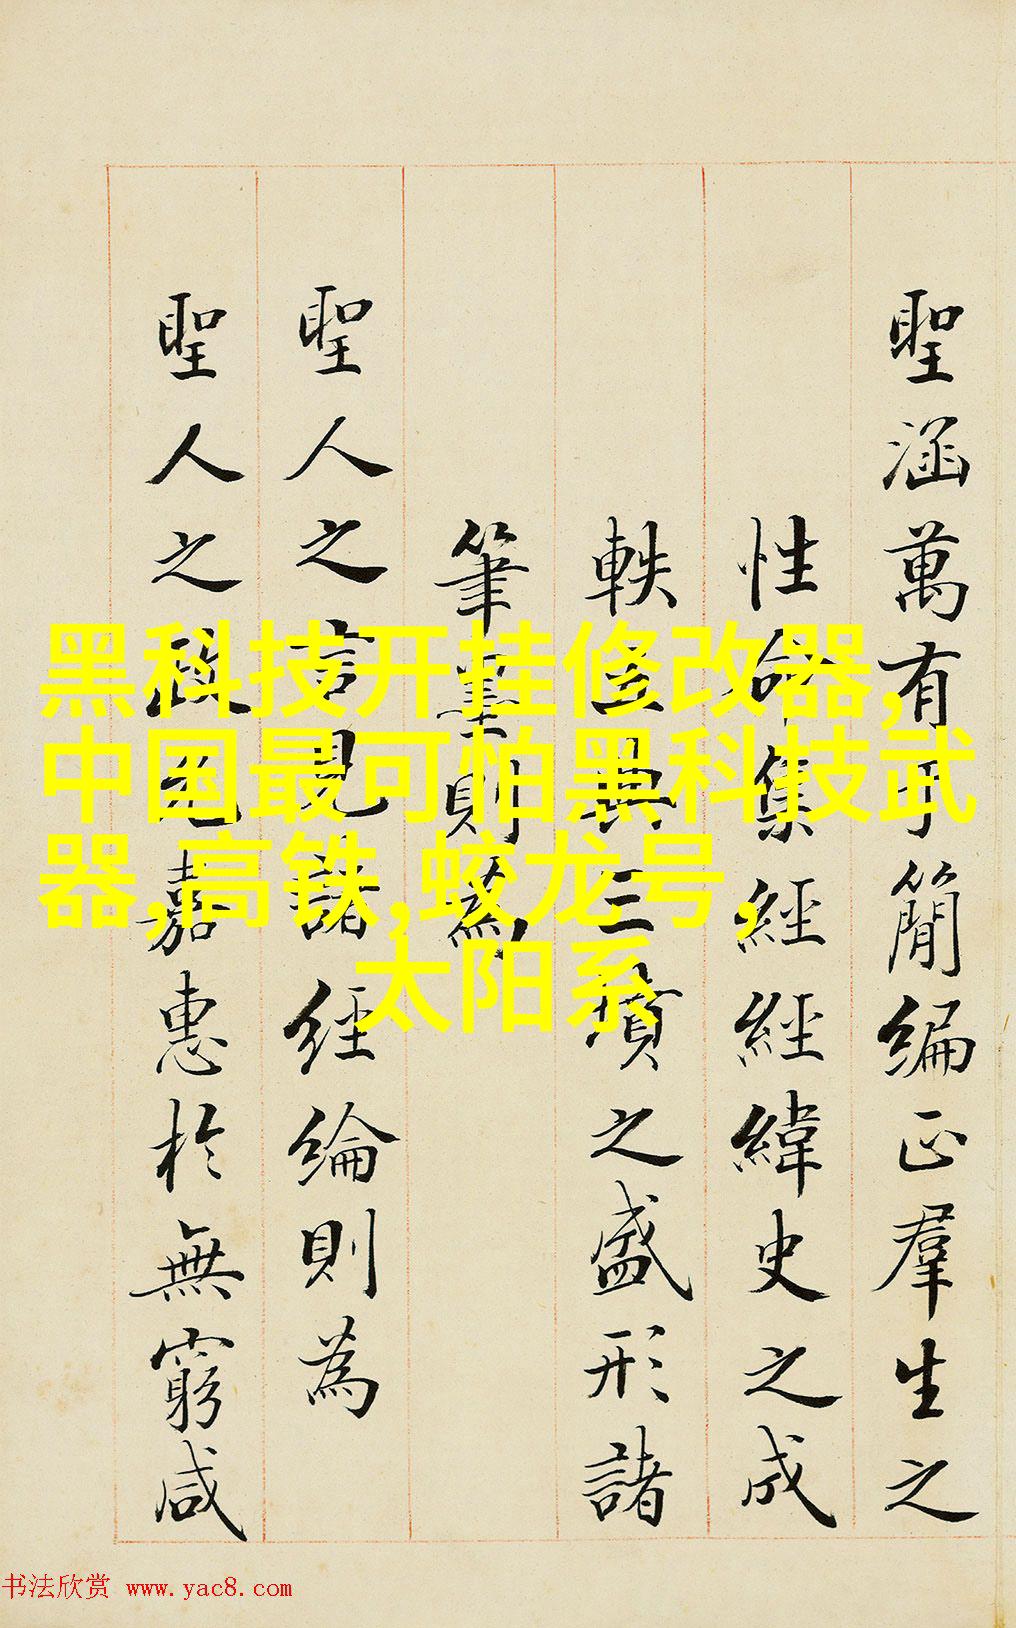 聖涵萬有于簡編正羣生之
性命集經經緯史之成
軼五典三墳之盛形諸
筆墨則為
聖人之言見諸經綸則為
聖人之嘉惠於無窮咸
黑科技开挂修改器,
中国最可怕黑科技武
器,高铁,蛟龙号,
太阳系
书法欣赏 www.yac8.com